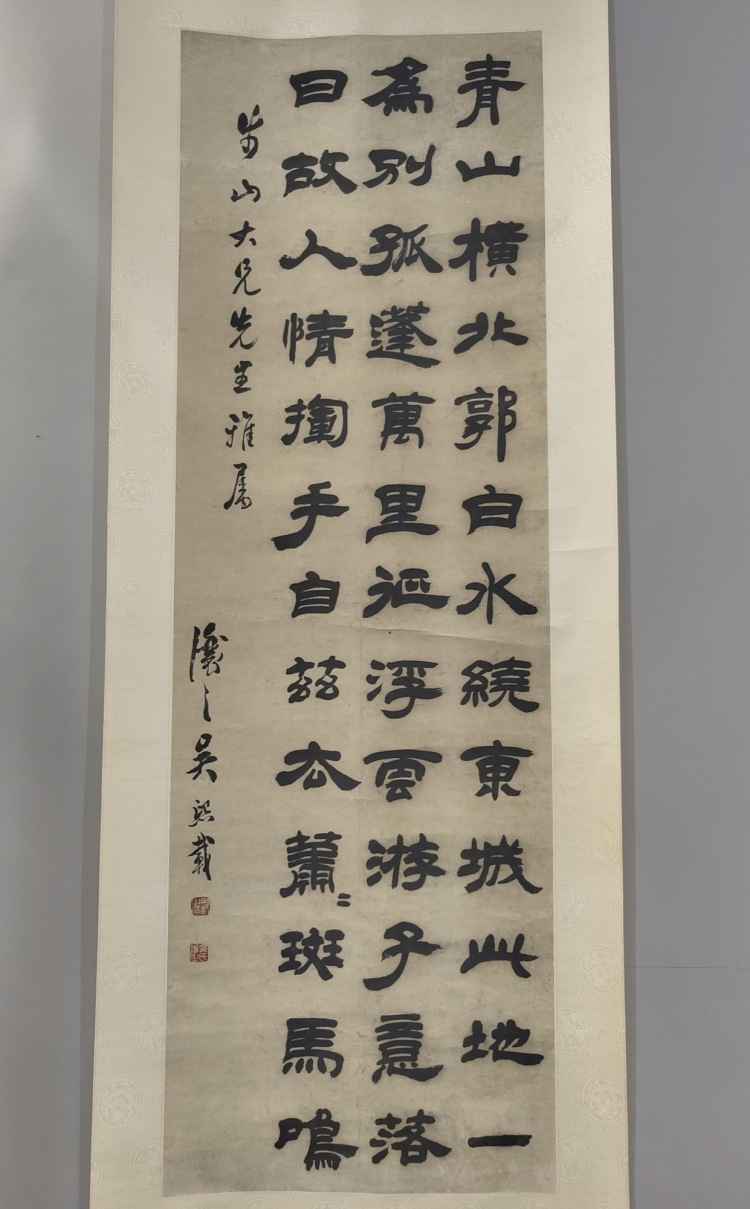 青山橫北郭白水繞東城此地一
為別孤蓬萬里征浮雲游子意落
日故人情揮手自茲去蕭〻斑馬鳴
山大兄先生雅屬
讓之吳熙載